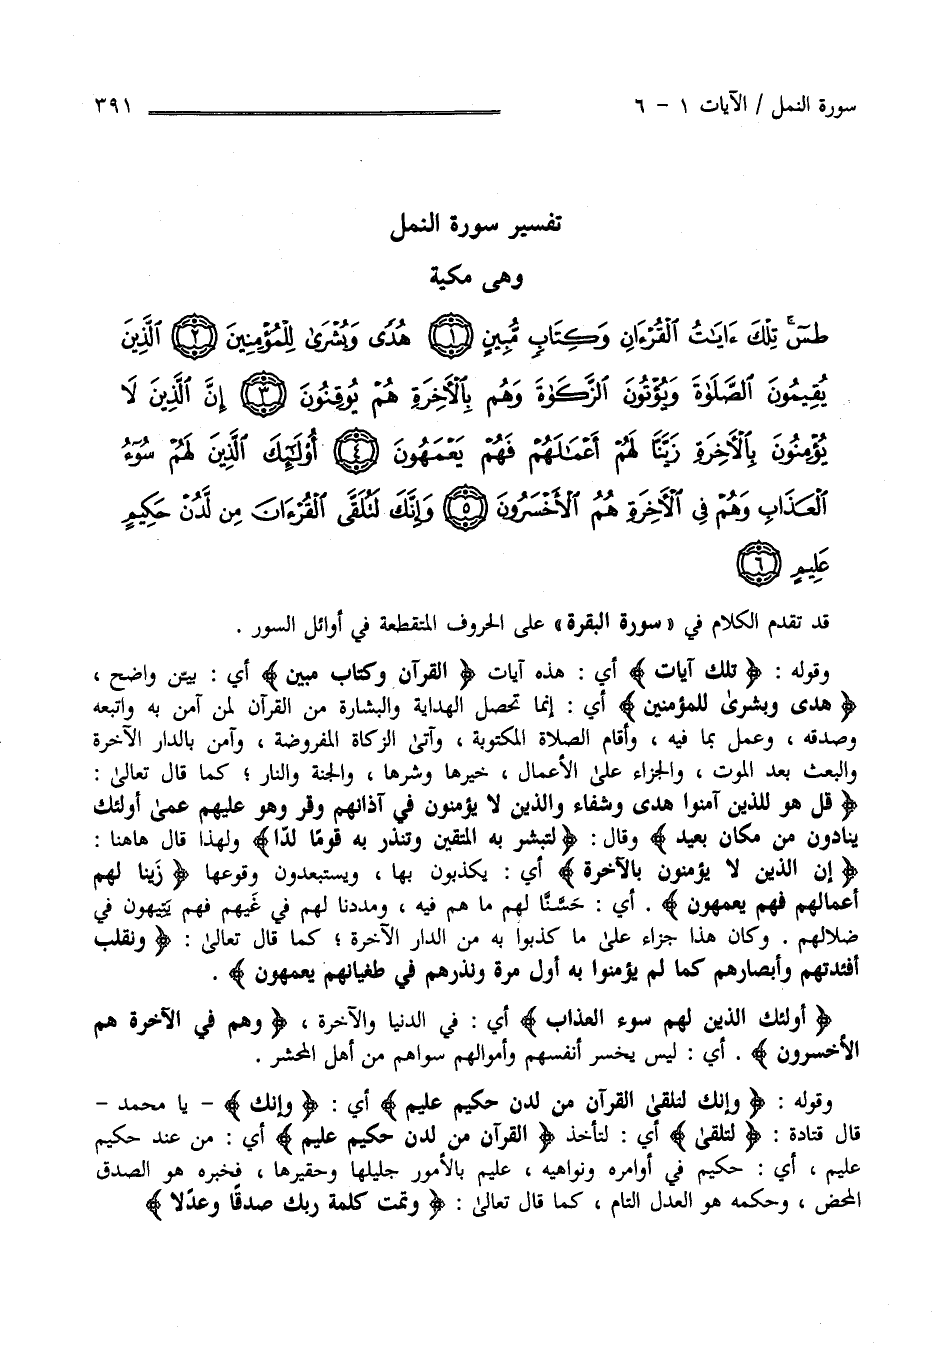 سورة النمل / الآيات ١ – ٦ ٣٩١
تفسير سورة النمل
وهى مكية
طسٓۚ تِلْكَ ءَايَٰتُ ٱلْقُرْءَانِ وَكِتَابٍ مُّبِينٍ ١ هُدًى وَبُشْرَىٰ لِلْمُؤْمِنِينَ ٢ ٱلَّذِينَ
يُقِيمُونَ ٱلصَّلَوٰةَ وَيُؤْتُونَ ٱلزَّكَوٰةَ وَهُم بِٱلْأٓخِرَةِ هُمْ يُوقِنُونَ ٣ إِنَّ ٱلَّذِينَ لَا
يُؤْمِنُونَ بِٱلْأٓخِرَةِ زَيَّنَّا لَهُمْ أَعْمَٰلَهُمْ فَهُمْ يَعْمَهُونَ ٤ أُوْلَٰٓئِكَ ٱلَّذِينَ لَهُمْ سُوٓءُ
ٱلْعَذَابِ وَهُمْ فِي ٱلْأٓخِرَةِ هُمُ ٱلْأَخْسَرُونَ ٥ وَإِنَّكَ لَتُلَقَّى ٱلْقُرْءَانَ مِن لَّدُنْ حَكِيمٍ
عَلِيمٍ ٦
قد تقدم الكلام في «سورة البقرة» على الحروف المتقطعة في أوائل السور .
وقوله : ﴿ تلك آيات ﴾ أي : هذه آيات ﴿ القرآن وكتاب مبين ﴾ أي : بيّن واضح ،
﴿ هدى وبشرىٰ للمؤمنين ﴾ أي : إنما تحصل الهداية والبشارة من القرآن لمن آمن به واتبعه
وصدقه ، وعمل بما فيه ، وأقام الصلاة المكتوبة ، وآتىٰ الزكاة المفروضة ، وآمن بالدار الآخرة
والبعث بعد الموت ، والجزاء علىٰ الأعمال ، خيرها وشرها ، والجنة والنار ؛ كما قال تعالىٰ :
﴿ قل هو للذين آمنوا هدى وشفاء والذين لا يؤمنون في آذانهم وقر وهو عليهم عمىٰ أولئك
ينادون من مكان بعيد ﴾ وقال : ﴿ لتبشر به المتقين وتنذر به قومًا لدّا﴾ ولهذا قال هاهنا :
﴿ إن الذين لا يؤمنون بالآخرة ﴾ أي : يكذبون بها ، ويستبعدون وقوعها ﴿ زَينا لهم
أعمالهم فهم يعمهون ﴾ . أي : حَسَّنَّا لهم ما هم فيه ، ومددنا لهم في غَيهم فهم يَتِيهون في
ضلالهم . وكان هذا جزاء علىٰ ما كذبوا به من الدار الآخرة ؛ كما قال تعالىٰ : ﴿ ونقلب
أفئدتهم وأبصارهم كما لم يؤمنوا به أول مرة ونذرهم في طغيانهم يعمهون ﴾ .
﴿ أولئك الذين لهم سوء العذاب ﴾ أي : في الدنيا والآخرة ، ﴿ وهم في الآخرة هم
الأخسرون ﴾ . أي : ليس يخسر أنفسهم وأموالهم سواهم من أهل المحشر .
وقوله : ﴿ وإنك لتلقىٰ القرآن من لدن حكيم عليم ﴾ أي : ﴿ وإنك ﴾ – يا محمد –
قال قتادة : ﴿ لتلقىٰ ﴾ أي : لتأخذ ﴿ القرآن من لدن حكيم عليم ﴾ أي : من عند حكيم
عليم ، أي : حكيم في أوامره ونواهيه ، عليم بالأمور جليلها وحقيرها ، فخبره هو الصدق
المحض ، وحكمه هو العدل التام ، كما قال تعالىٰ : ﴿ وتمت كلمة ربك صدقًا وعدًلا ﴾